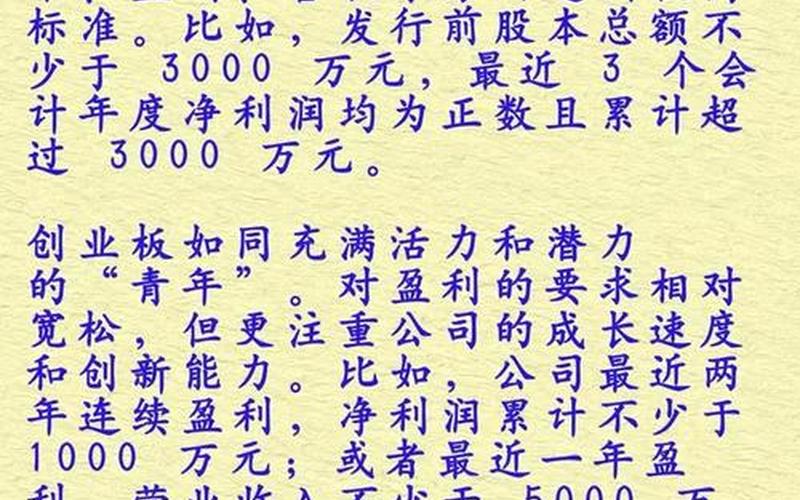 标准。比如，发行前股本总额不
少于 3000 万元，最近 3 个会
计年度净利润均为正数且累计超
过 3000 万元。
创业板如同充满活力和潜力
的“青年”。对盈利的要求相对
宽松，但更注重公司的成长速度
和创新能力。比如，公司最近两
年连续盈利，净利润累计不少于
1000 万元；或者最近一年盈
利，营业收入不少于 5000 万